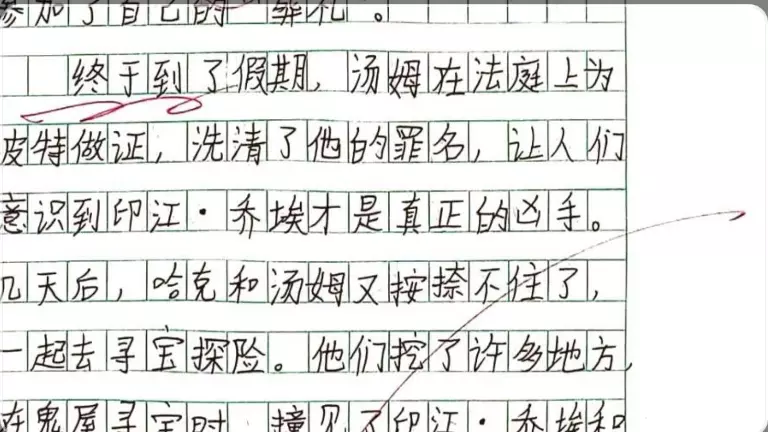 参加了自己的"葬礼"。
终于到了假期，汤姆在法庭上为
皮特做证，洗清了他的罪名，让人们
意识到印江·乔埃才是真正的凶手。
几天后，哈克和汤姆又按捺不住了，
一起去寻宝探险。他们挖了许多地方，
在鬼屋寻宝时，撞见了印江·乔埃和